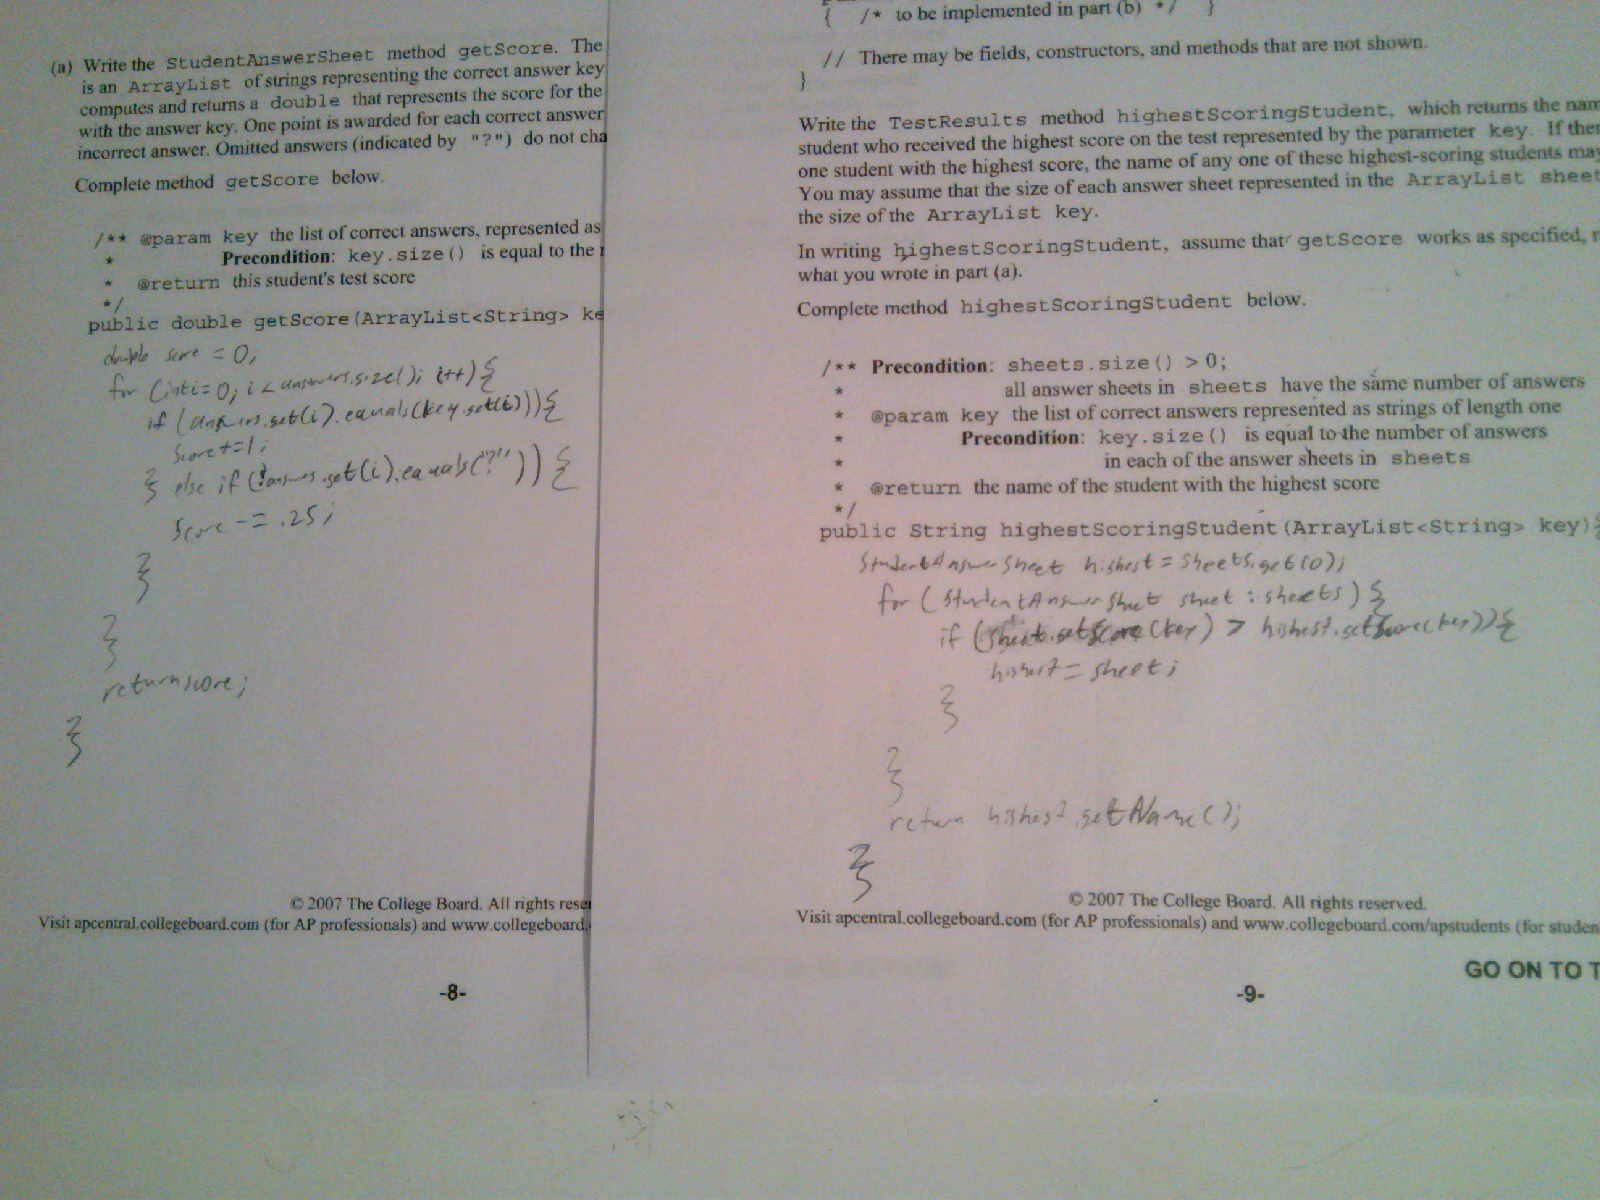 (a) Write the StudentAnswerSheet method getScore. The
is an ArrayList of strings representing the correct answer key
computes and returns a double that represents the score for the
with the answer key. One point is awarded for each correct answer
incorrect answer. Omitted answers (indicated by "?") do not cha
Complete method getScore below.
/** @param key the list of correct answers, represented as
* Precondition: key.size() is equal to the
* @return this student's test score
*/
public double getScore(ArrayList<String> ke
double score = 0;
for (int i=0; i < answers.size(); i++) {
if (answers.get(i).equals(key.get(i))) {
score += 1;
} else if (!answers.get(i).equals("?")) {
score -= .25;
}
}
return score;
}
© 2007 The College Board. All rights rese
Visit apcentral.collegeboard.com (for AP professionals) and www.collegeboard.
-8-
{ /* to be implemented in part (b) */ }
// There may be fields, constructors, and methods that are not shown.
}
Write the TestResults method highestScoringStudent, which returns the nam
student who received the highest score on the test represented by the parameter key. If ther
one student with the highest score, the name of any one of these highest-scoring students may
You may assume that the size of each answer sheet represented in the ArrayList sheet
the size of the ArrayList key.
In writing highestScoringStudent, assume that getScore works as specified, r
what you wrote in part (a).
Complete method highestScoringStudent below.
/** Precondition: sheets.size() > 0;
* all answer sheets in sheets have the same number of answers
* @param key the list of correct answers represented as strings of length one
* Precondition: key.size() is equal to the number of answers
* in each of the answer sheets in sheets
* @return the name of the student with the highest score
*/
public String highestScoringStudent(ArrayList<String> key){
StudentAnswerSheet highest = sheets.get(0);
for (StudentAnswerSheet sheet : sheets) {
if (sheet.getScore(key) > highest.getScore(key)) {
highest = sheet;
}
}
return highest.getName();
}
© 2007 The College Board. All rights reserved.
Visit apcentral.collegeboard.com (for AP professionals) and www.collegeboard.com/apstudents (for studen
GO ON TO T
-9-